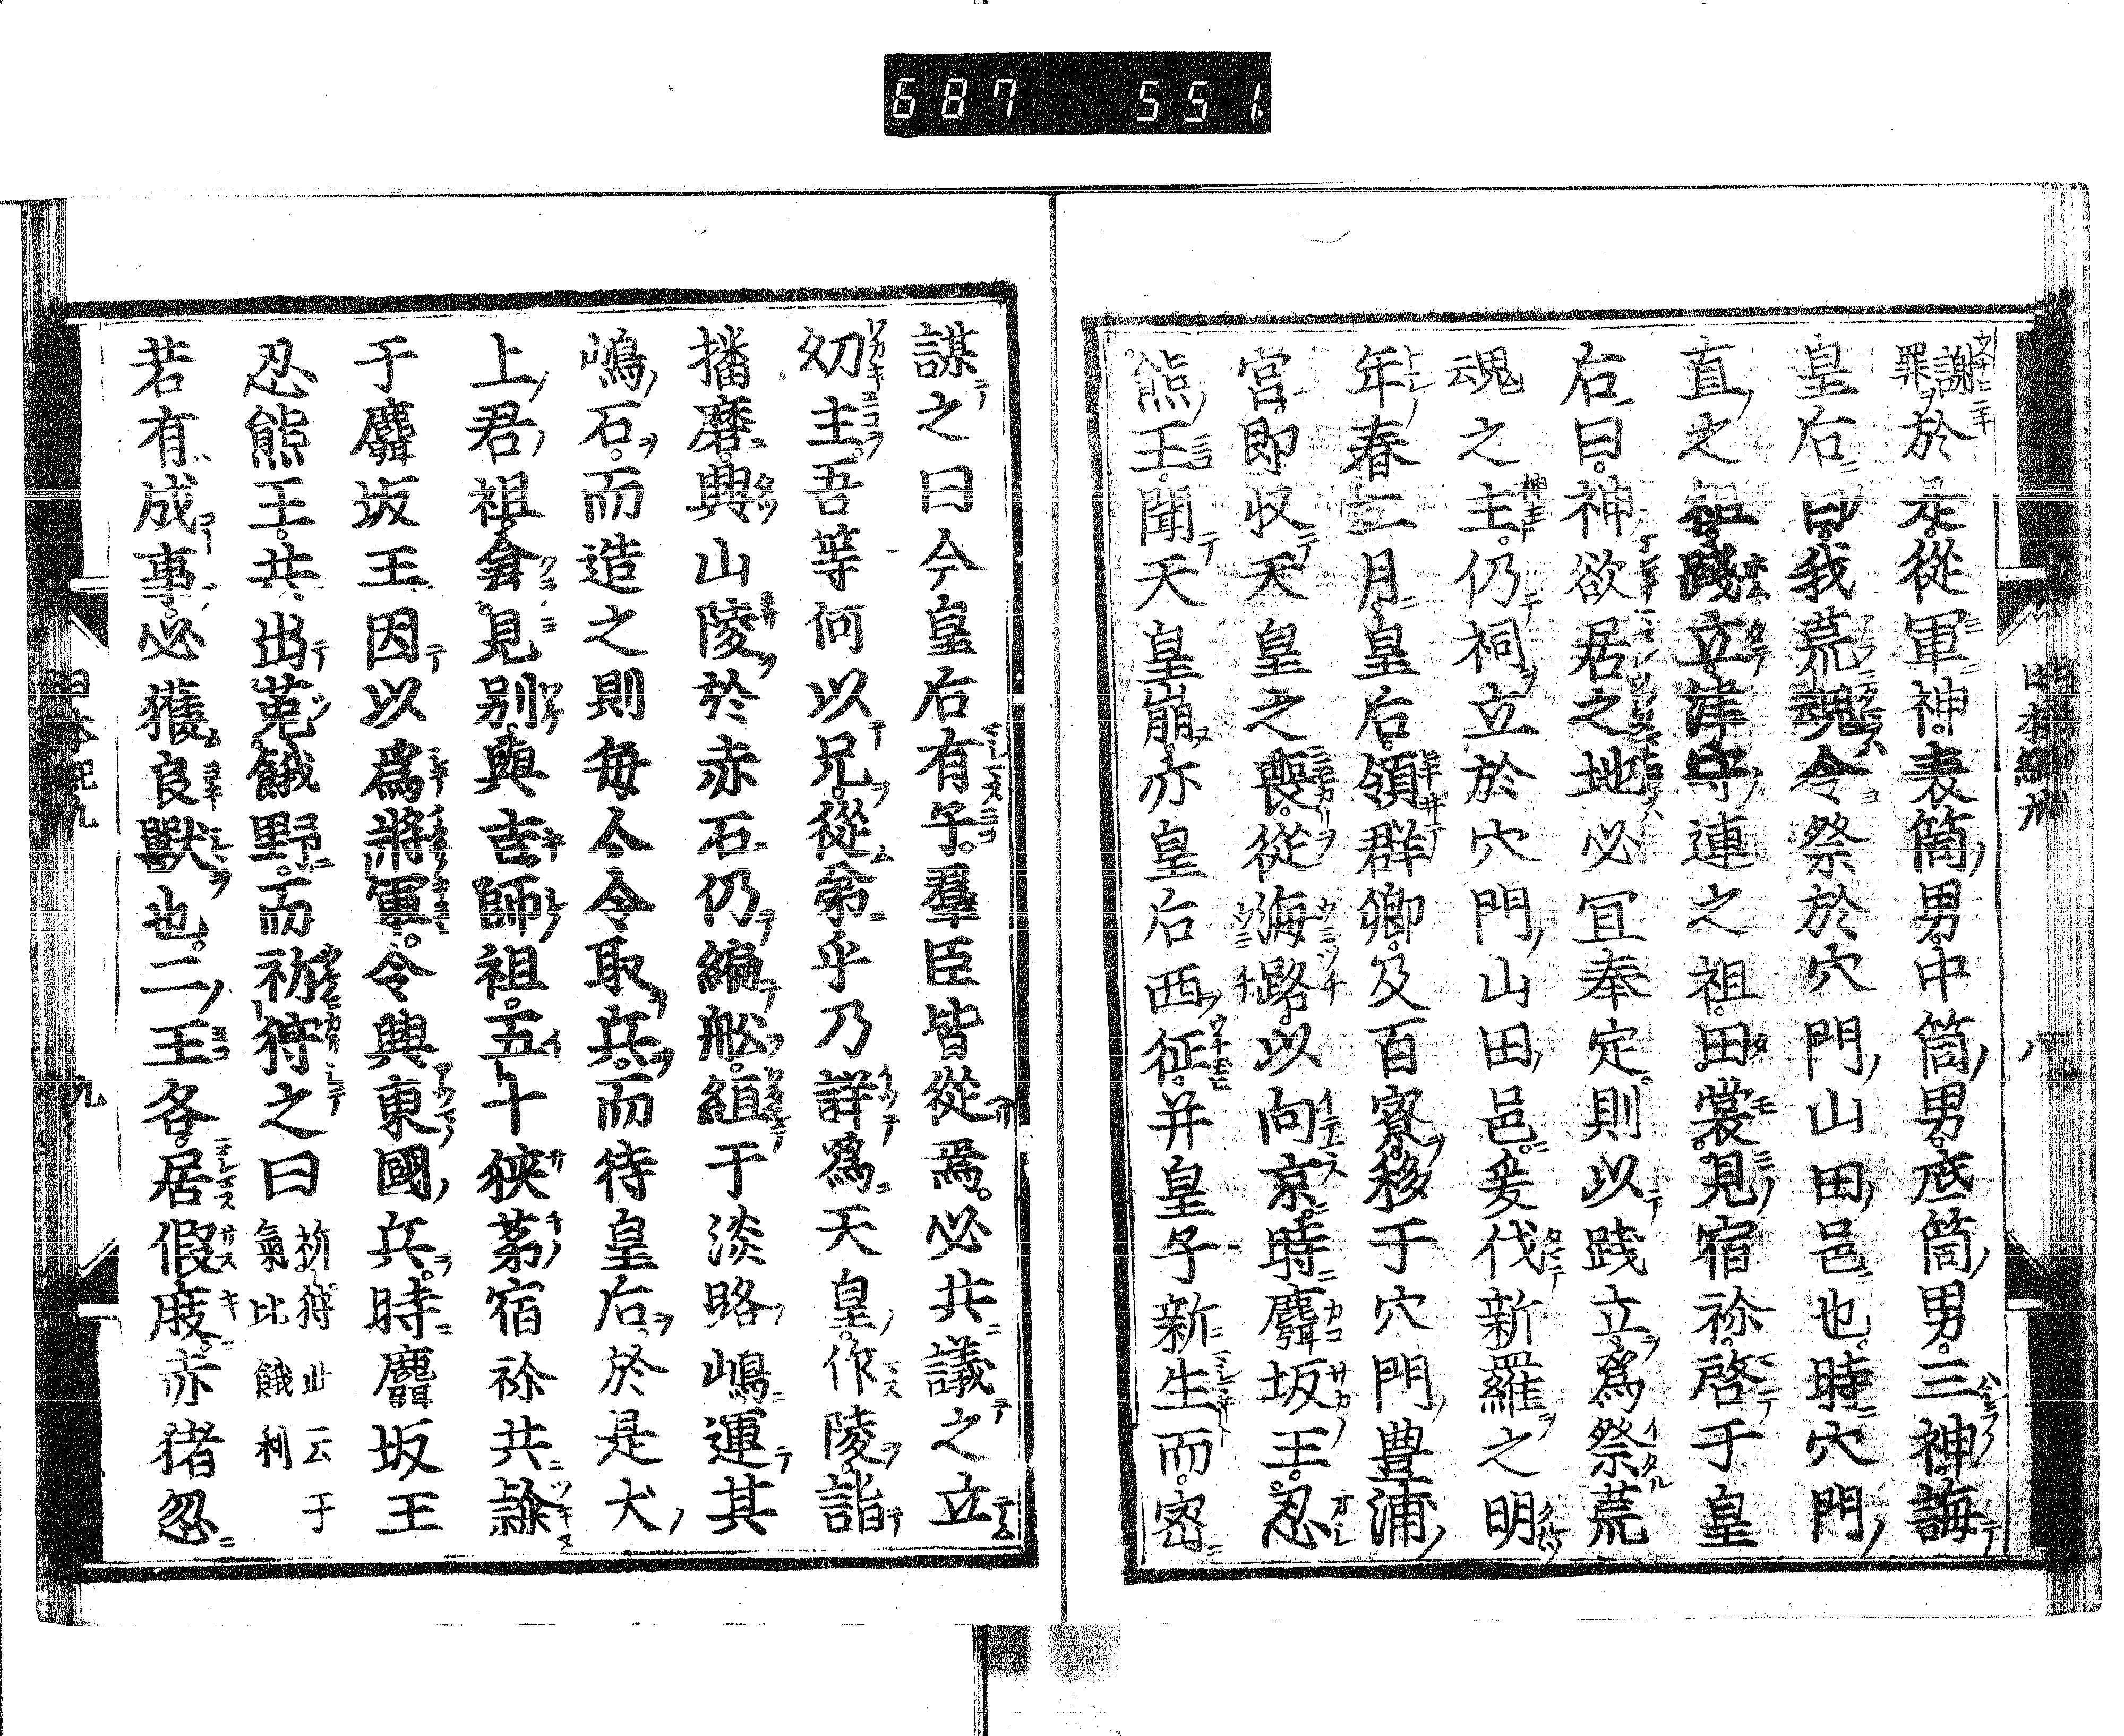 687 551
謝罪於是從軍神表筒男中筒男底筒男三神誨
皇后曰我荒魂令祭於穴門山田邑也時穴門
直之祖踐立津守連之祖田裳見宿祢啓于皇
后曰神欲居之地必冝奉定則以践立爲祭荒
魂之主仍祠立於穴門山田邑爰伐新羅之明
年春二月皇后領群卿及百寮移于穴門豊浦
宮即収天皇之喪從海路以向京時麛坂王忍
熊王聞天皇崩亦皇后西征并皇子新生而密
謀之曰今皇后有子羣臣皆從焉必共議之立
幼主吾等何以兄從弟乎乃詳爲天皇作陵詣
播磨興山陵於赤石仍編舩絙于淡路嶋運其
嶋石而造之則每人令取兵而待皇后於是犬
上君祖倉見別與吉師祖五十狹茅宿祢共隷
于麛坂王因以爲將軍令興東國兵時麛坂王
忍熊王共出菟餓野而祈狩之曰祈狩此云于氣比餓利
若有成事必獲良獸也二王各居假庪赤猪忽
日本紀九
八
日本紀九
九